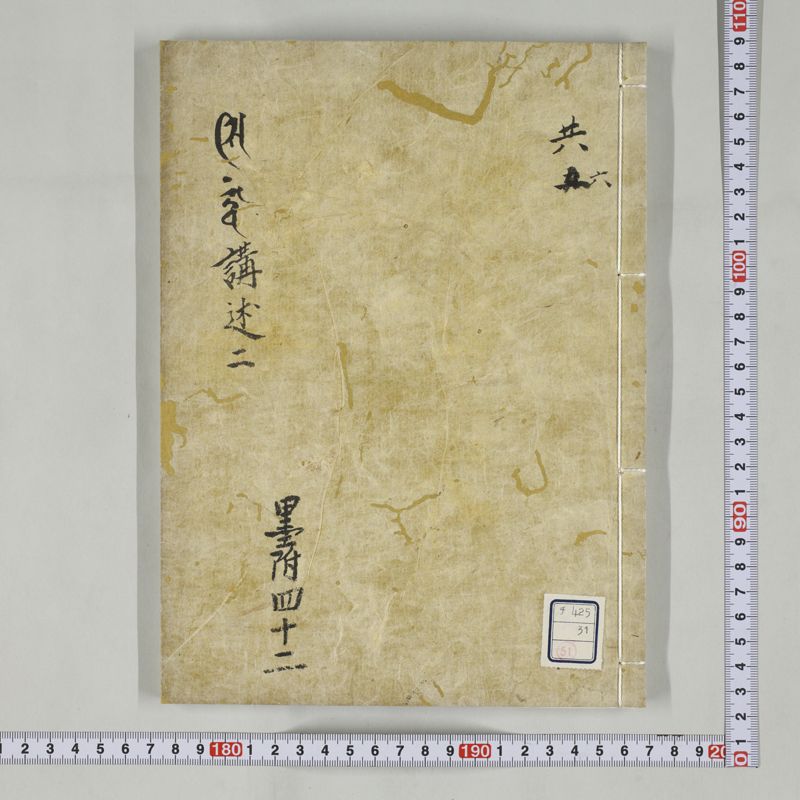 共
六
講述二
墨附四十二
425
31
(51)
1 2 3 4 5 6 7 8 9 180 1 2 3 4 5 6 7 8 9 190 1 2 3 4 5 6 7 8 9
110 9 8 7 6 5 4 3 2 1 100 9 8 7 6 5 4 3 2 1 90 9 8 7 6 5 4 3 2 1